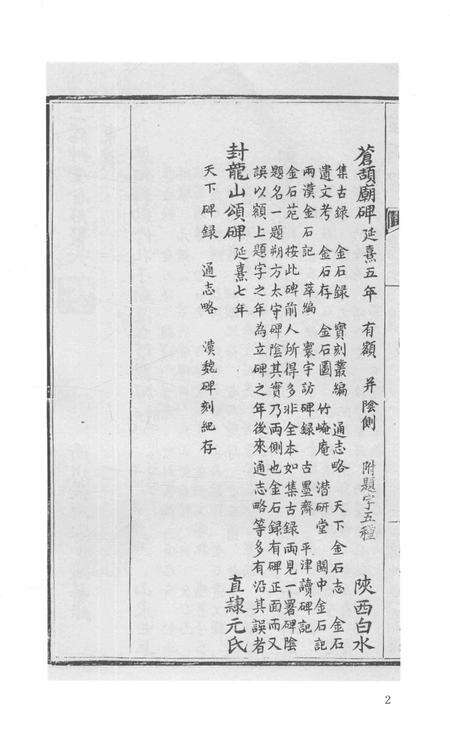 蒼頡廟碑 延熹五年 有額 并陰側 附題字五種 陝西白水
集古録 金石録 寳刻叢編 通志略 天下金石志 金石
遺文考 金石存 金石圖 竹崦庵 潜研堂 關中金石記
兩漢金石記 萃編 寰宇訪碑録 古墨齋 平津讀碑記
金石苑 按此碑前人所得多非全本如集古録兩見一署碑陰
題名一題朔方太守碑陰其實乃兩側也金石録有碑正面而又
誤以額上題字之年為立碑之年後來通志略等多有沿其誤者
封龍山頌碑 延熹七年 直隸元氏
天下碑録 通志略 漢魏碑刻紀存
2